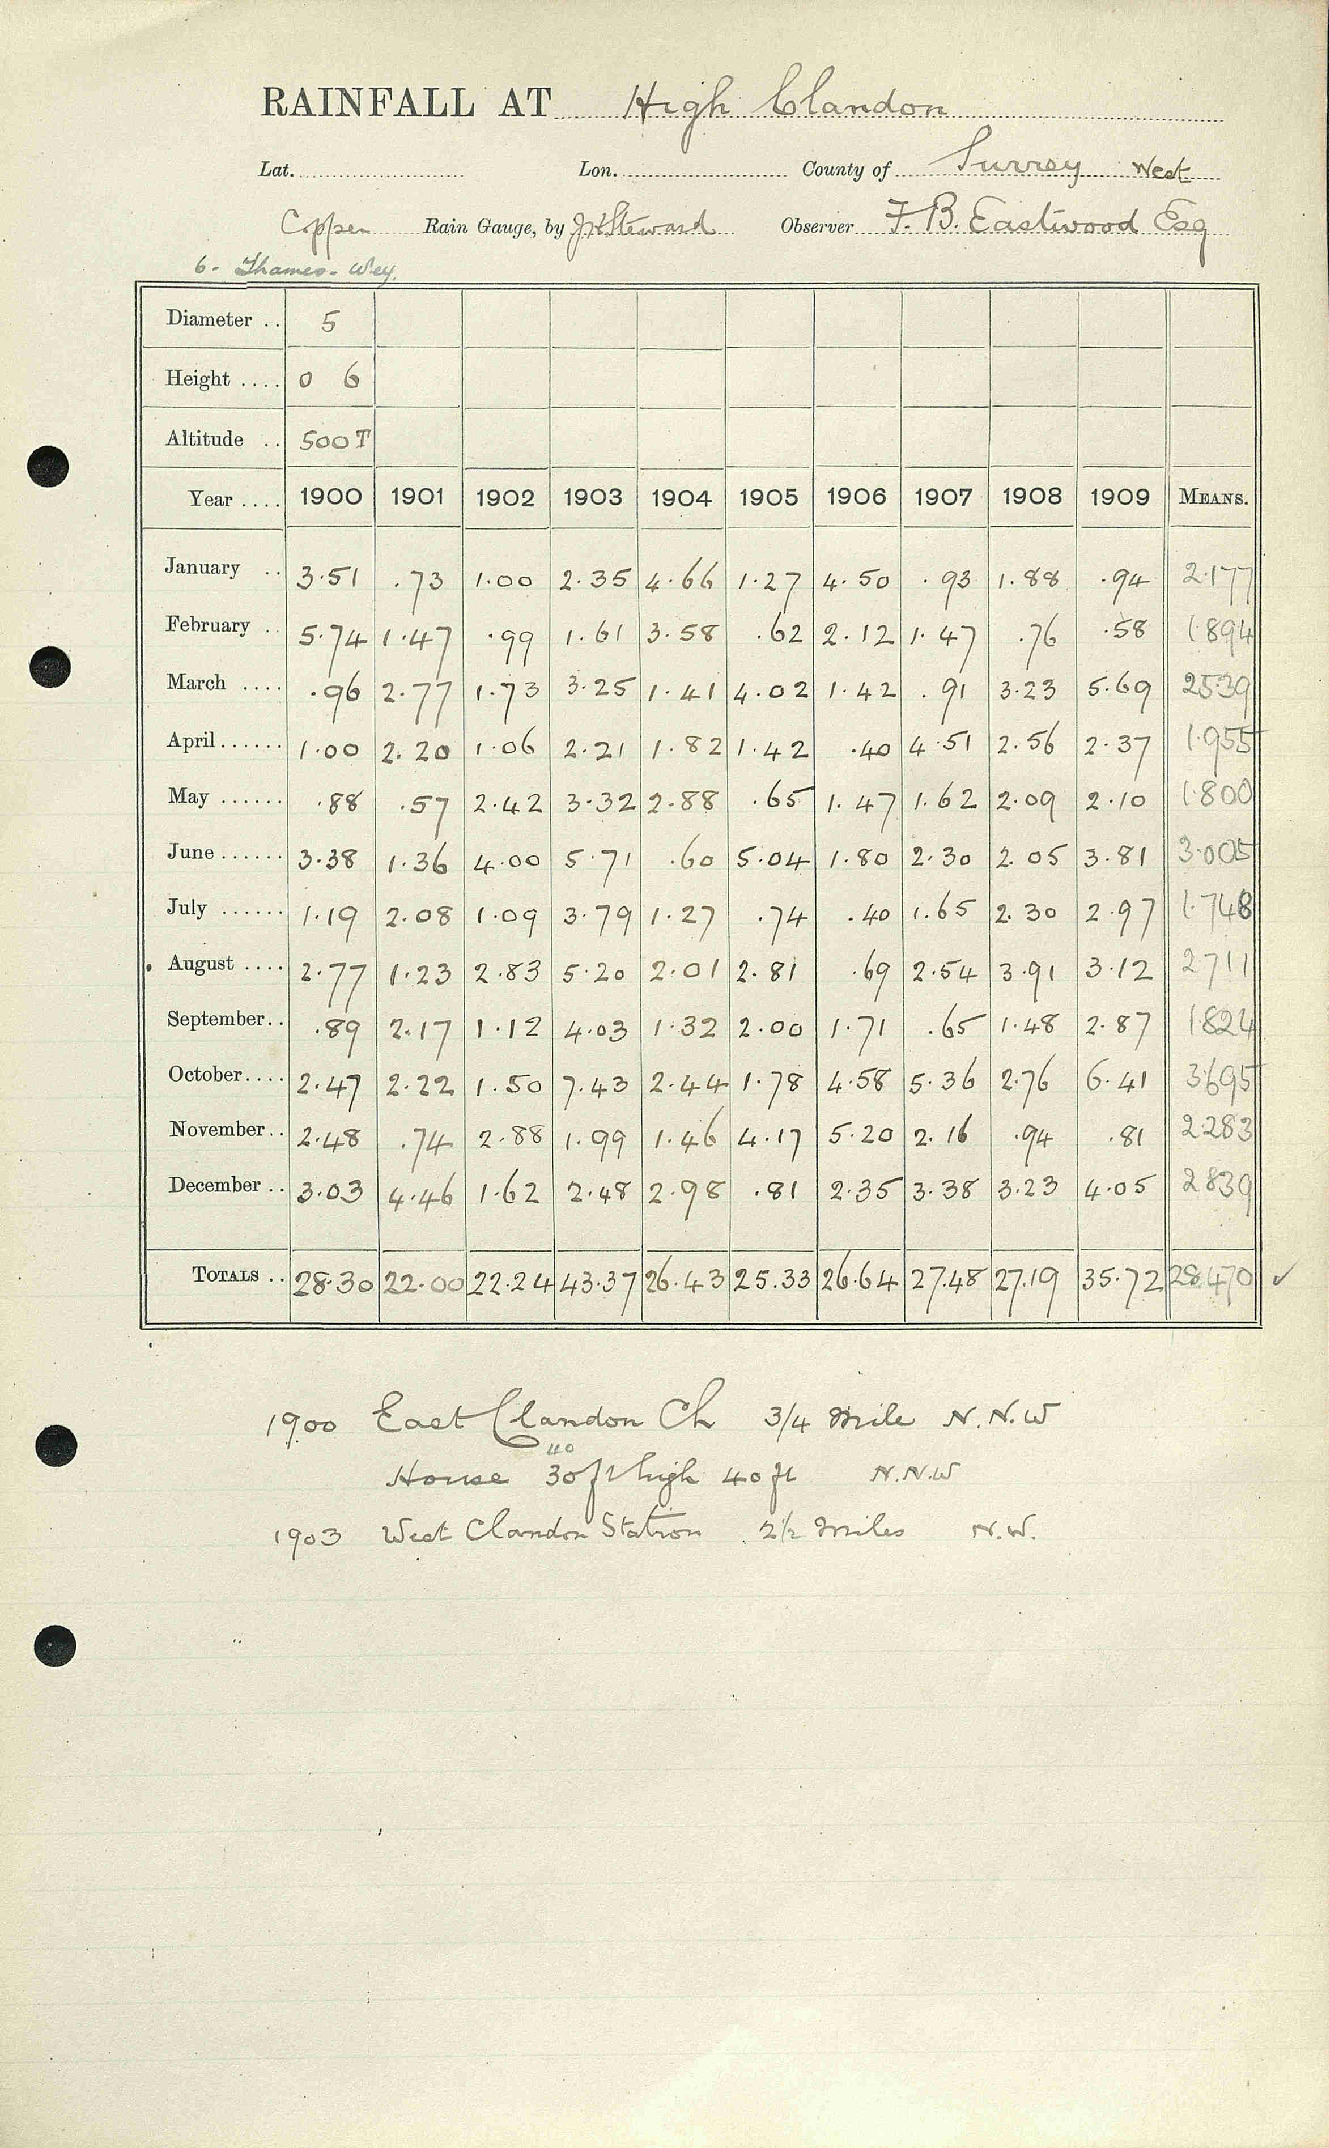 RAINFALL AT High Clandon
Lat. Lon. County of Surrey West
Copper Rain Gauge, by J H Steward Observer F. B. Eastwood Esq
6 - Thames - Wey.
Diameter .. 5
Height .... 0 6
Altitude .. 500 T
Year .... 1900 1901 1902 1903 1904 1905 1906 1907 1908 1909 MEANS.
January .. 3.51 .73 1.00 2.35 4.66 1.27 4.50 .93 1.88 .94 2.177
February .. 5.74 1.47 .99 1.61 3.58 .62 2.12 1.47 .76 .58 1.894
March .... .96 2.77 1.73 3.25 1.41 4.02 1.42 .91 3.23 5.69 2539
April ...... 1.00 2.20 1.06 2.21 1.82 1.42 .40 4.51 2.56 2.37 1.955
May ...... .88 .57 2.42 3.32 2.88 .65 1.47 1.62 2.09 2.10 1.800
June ...... 3.38 1.36 4.00 5.71 .60 5.04 1.80 2.30 2.05 3.81 3.005
July ...... 1.19 2.08 1.09 3.79 1.27 .74 .40 1.65 2.30 2.97 1.748
August .... 2.77 1.23 2.83 5.20 2.01 2.81 .69 2.54 3.91 3.12 2711
September .. .89 2.17 1.12 4.03 1.32 2.00 1.71 .65 1.48 2.87 1824
October .... 2.47 2.22 1.50 7.43 2.44 1.78 4.58 5.36 2.76 6.41 3.695
November .. 2.48 .74 2.88 1.99 1.46 4.17 5.20 2.16 .94 .81 2.283
December .. 3.03 4.46 1.62 2.48 2.98 .81 2.35 3.38 3.23 4.05 2839
TOTALS .. 28.30 22.00 22.24 43.37 26.43 25.33 26.64 27.48 27.19 35.72 28.470 ✓
1900 East Clandon Ch 3/4 Mile N.N.W
40
House 30 ft high 40 ft N.N.W
1903 West Clandon Station 2½ Miles N.W.